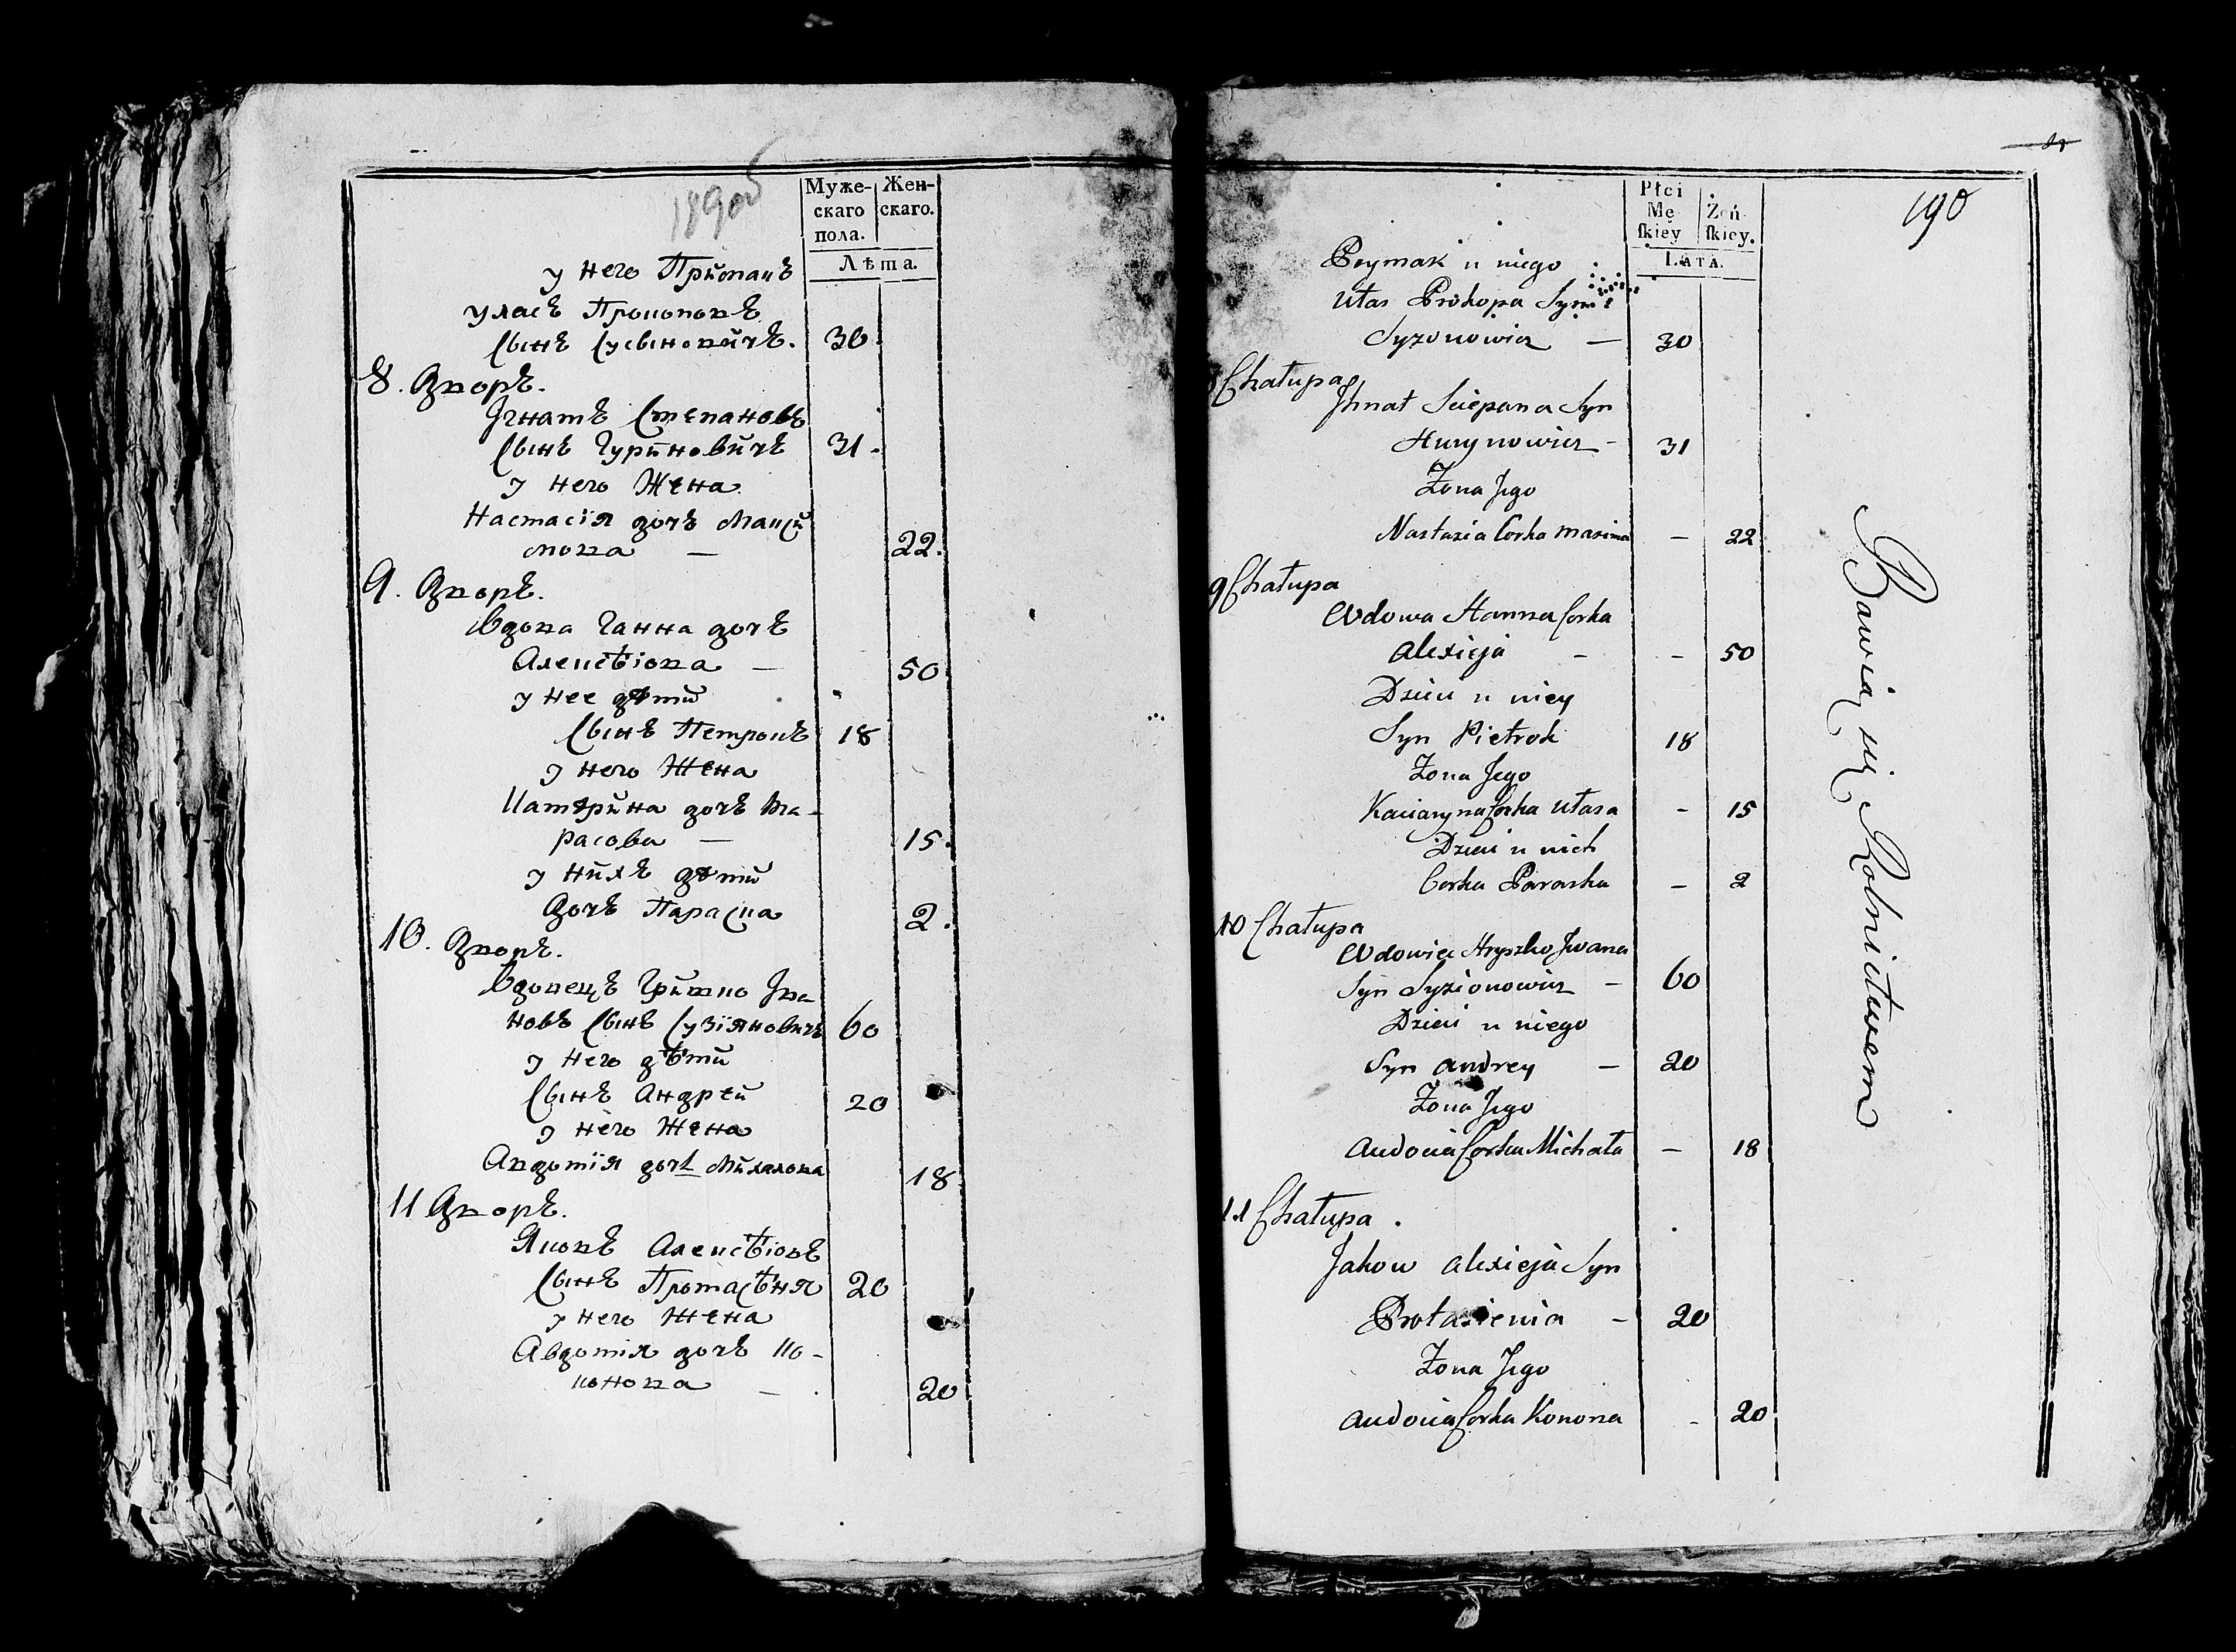 189об
Муже-
скаго
пола.
Жен-
скаго.
Лѣта.
у него Прймакъ
Уласъ Прокоповъ
Сынъ Сусыновйчъ. 30
8. Дворъ.
Ігнатъ Степановъ
Сынъ Гурйновйчъ 31.
у него Жена
Настасія дочъ Максй
мова — 22.
9. Дворъ.
Вдова Ганна дочъ
Алексѣіова — 50
у нее дѣтй
Сынъ Петрокъ 18
у него Жена
Катѣрйна дочъ
расова — 15.
у нйхъ дѣтй
Дочъ Параска 2.
10. Дворъ.
Вдовецъ Грйшко Іва
новъ Сынъ Сузіяновичъ 60
у него дѣтй
Сынъ Андрей 20
у него Жена
Авдотія дочъ Мйхалова 18
11 Дворъ.
Яковъ Алексѣіовъ
Сынъ Протасѣня 20
у него Жена
Авдотія дочъ Ко-
нонова — 20
190
Płci
Mę
ſkiey
Żeń
ſkiey.
LATA.
Prymak u niego
Ułas Prokopa Syn
Syzonowicz — 30
8 Chałupa
Jhnat Sciepana Syn
Hurynowicz - 31
Zona Jego
Nastazia Corka Maxima — 22
9 Chałupa
Wdowa Hanna Corka
Alexieja - - 50
Dzieci u niey
Syn Pietrok 18
Zona Jego
Kaciaryna Corka Ułasa - 15
Dzieci u nich
Corka Paraska - 2
10 Chałupa
Wdowiec Hryszko Jwana
Syn Syzionowicz - 60
Dzieci u niego
Syn Andrey — 20
Zona Jego
Audocia Corka Michała — 18
11 Chałupa.
Jakow Alexieja Syn
Protasienia - 20
Zona Jego
Audocia Corka Konona - 20
Bawią się Rolnictwem